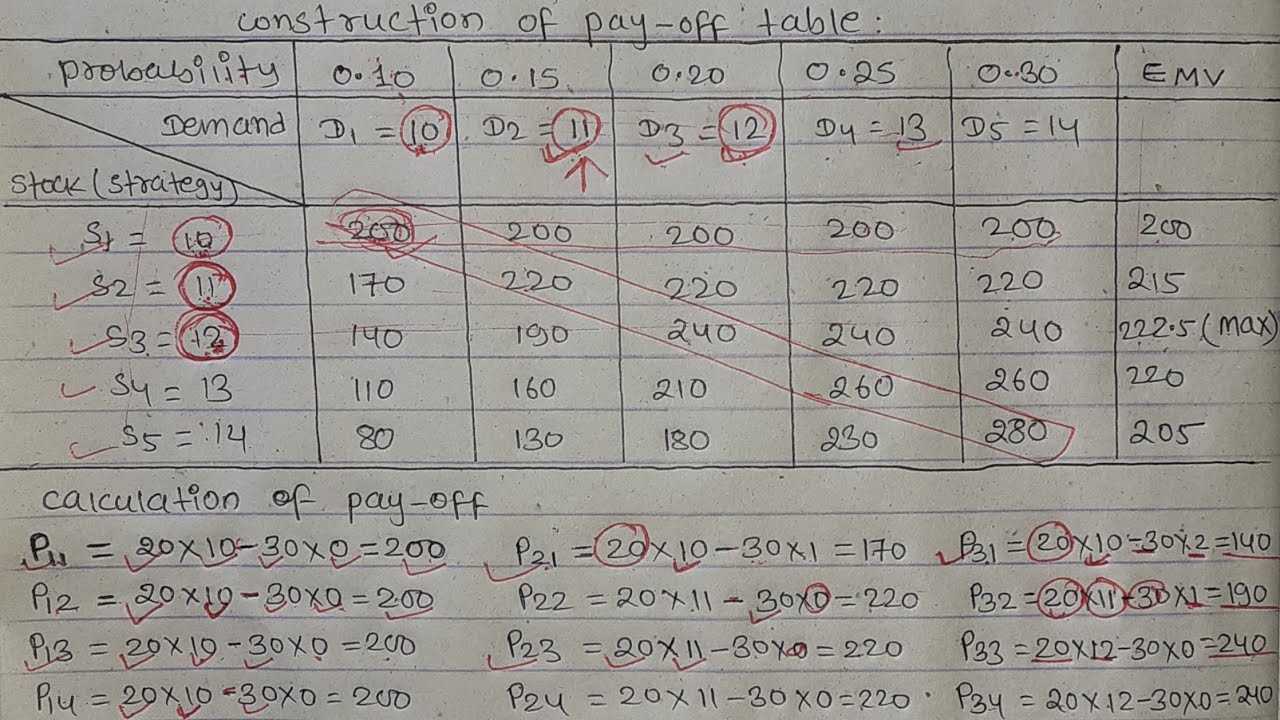 construction of pay-off table:
probability 0.10 0.15 0.20 0.25 0.30 EMV
Demand D1 = 10 D2 = 11 D3 = 12 D4 = 13 D5 = 14
Stock (Strategy)
S1 = 10 200 200 200 200 200 200
S2 = 11 170 220 220 220 220 215
S3 = 12 140 190 240 240 240 222.5 (max)
S4 = 13 110 160 210 260 260 220
S5 = 14 80 130 180 230 280 205
calculation of pay-off
P11 = 20×10-30×0=200 P21 = 20×10-30×1=170 P31 = 20×10-30×2=140
P12 = 20×10-30×0=200 P22 = 20×11-30×0=220 P32 = 20×11-30×1=190
P13 = 20×10-30×0=200 P23 = 20×11-30×0=220 P33 = 20×12-30×0=240
P14 = 20×10-30×0=200 P24 = 20×11-30×0=220 P34 = 20×12-30×0=240